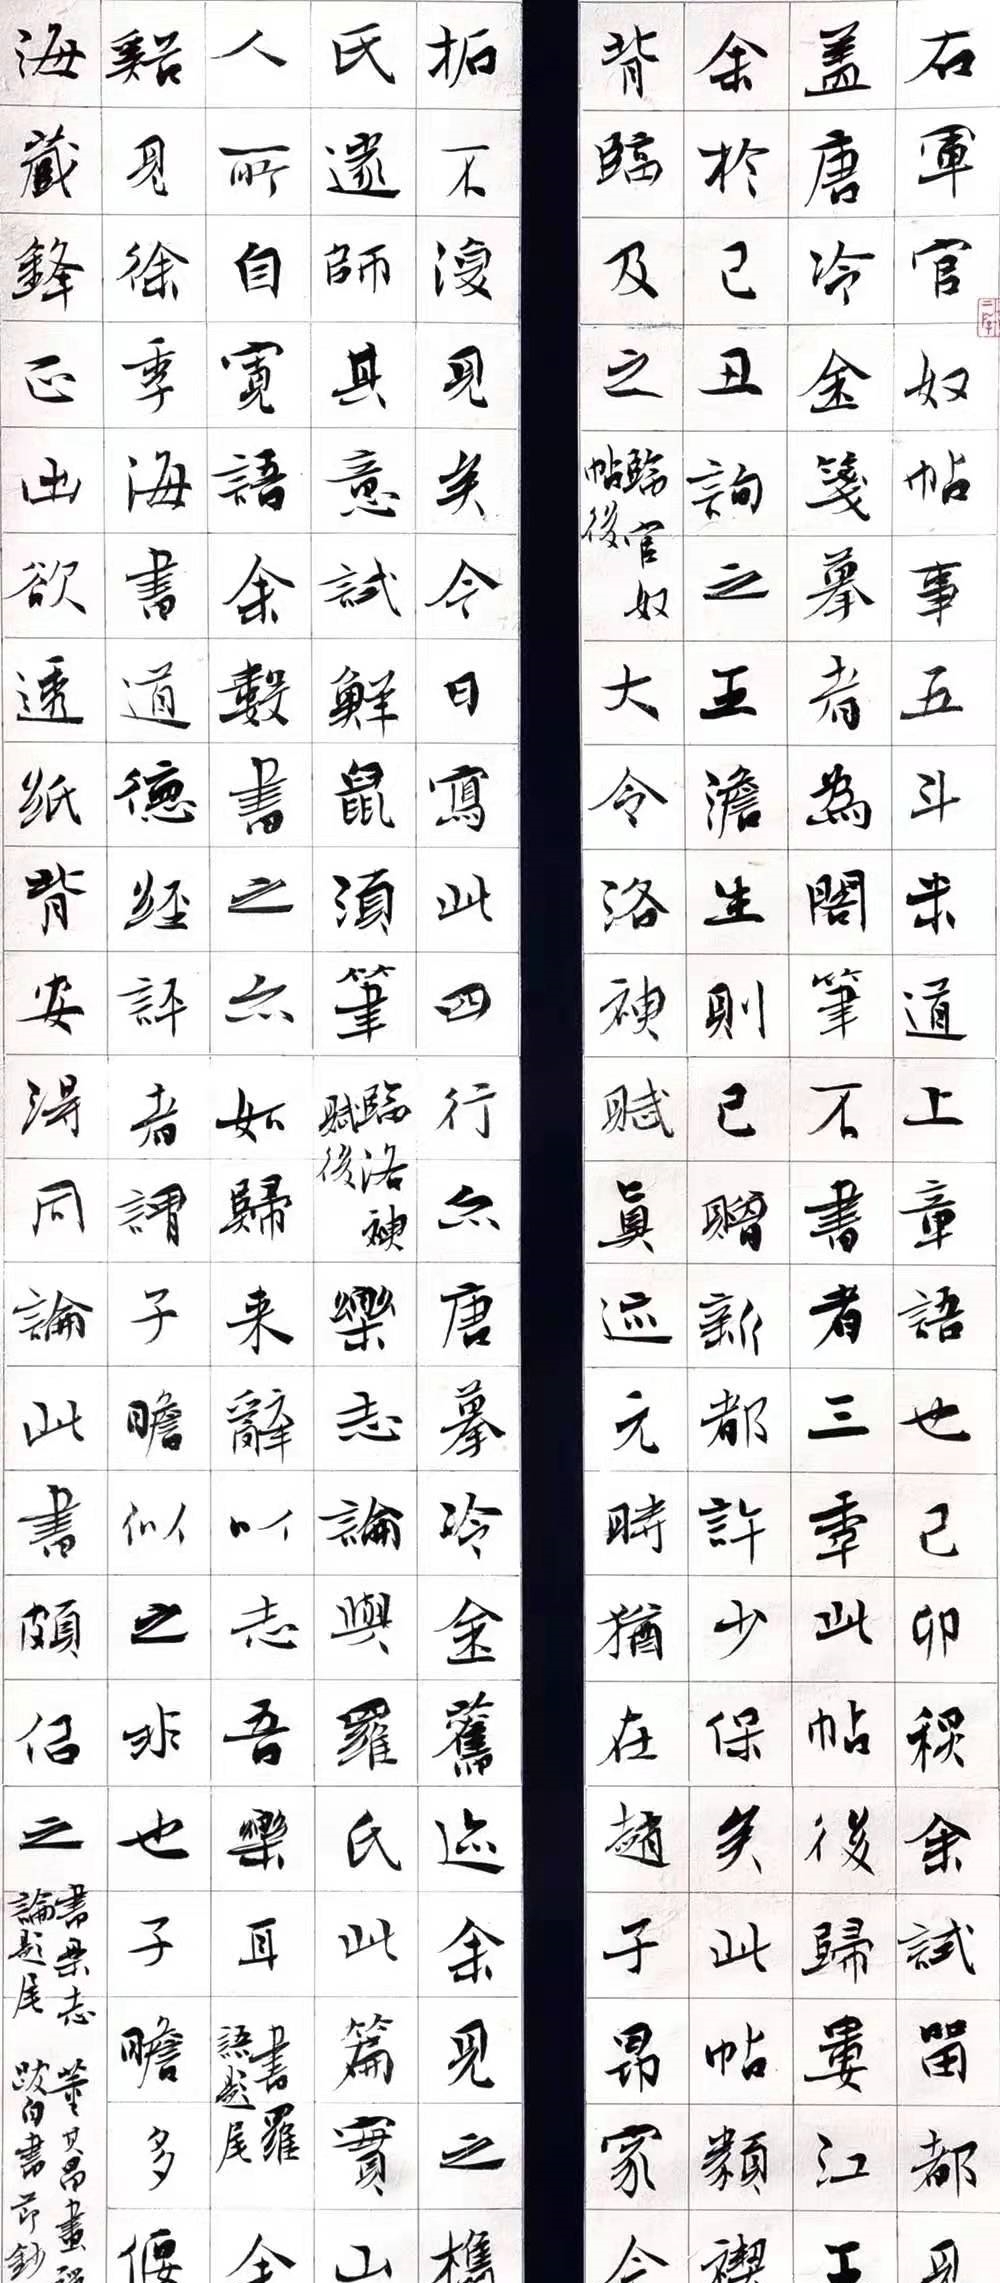 右軍官奴帖事五斗米道上章語也己卯穐余試留都見
蓋唐冷金箋摹者為閣筆不書者三季此帖後歸婁江王
余於己丑詢之王澹生則已贈新都許少保矣此帖類禊
背臨及之
臨官奴
帖後
大令洛神賦真迹元時猶在趙子昂家今
拓不復見矣今日寫此四行亦唐摹冷金舊迹余見之樵
氏遂師其意試鮮鼠須筆
臨洛神
賦後
樂志論與羅氏此篇實山
人所自寬語余數書之亦如歸来辭以志吾樂耳
書羅
語題尾
全
谿見徐季海書道德經評者謂子瞻似之非也子瞻多偃
海藏鋒正出欲透紙背安得同論此書頗佀之
書樂志
論題尾
董其昌畫禪
跋自書節鈔